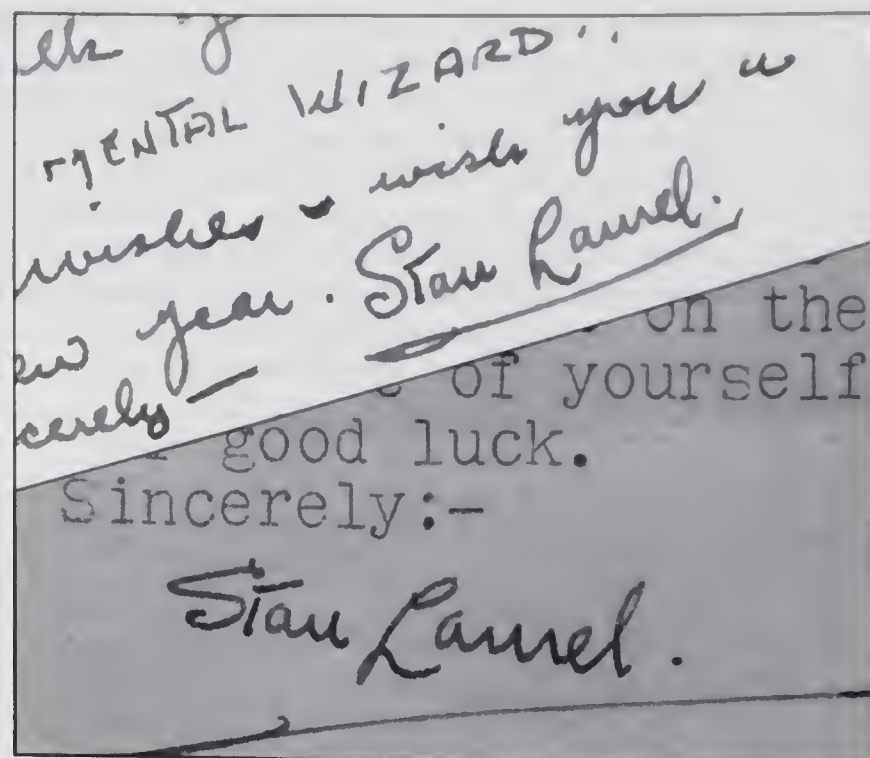 MENTAL WIZARD!!
wishes & wish you a
year. Stan Laurel.
cerely —
on the
of yourself
good luck.
Sincerely:-
Stan Laurel.